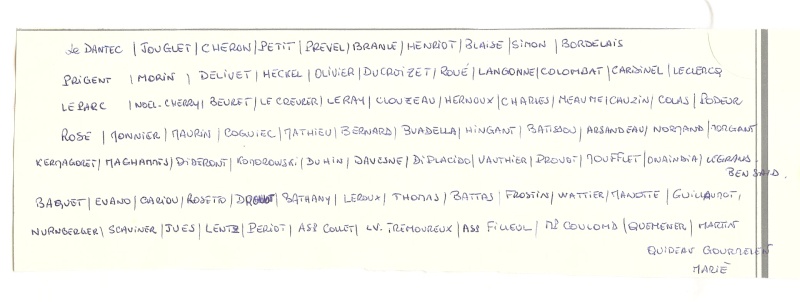 Le DANTEC | JOUGLET | CHERON | PETIT | PREVEL | BRANLE | HENRIOT | BLAISE | SIMON | BORDELAIS
PRIGENT | MORIN | DELIVET | HECKEL | OLIVIER | DUCROIZET | ROUÉ | LANGONNE | COLOMBAT | CARDINEL | LECLERCQ
LE PARC | NOEL-CHERRY | BEURET | LE CREURER | LE RAY | CLOUZEAU | HERNOUX | CHARLES | MEAUME | CAUZIN | COLAS | PODEUR
ROSE | MONNIER | MAURIN | COGUIEC | MATHIEU | BERNARD | BUADELLA | HINGANT | BATISSOU | ARSANDEAU | NORMAND | MORGANT
KERMAGORET | MAGHAMÈS | DIDERONT | KOMOROWSKI | DUHIN | DAVESNE | DIPLACIDO | VAUTHIER | PROVOT | MOUFFLET | ONAINDIA | LEGRAND
BEN SAID.
BAQUET | EVANO | CARIOU | ROSETTO | BATHANY | LEROUX | THOMAS | BATTAS | FROSTIN | WATTIER | MANOTTE | GUILLAUMOT,
NURNBERGER | SCAVINER | JUES | LENTZ | PERIOT | ASP COLLET | LV. TREMOUREUX | ASP FILLEUL | COULOMB | QUEMENER | MARTIN
QUIDEAU GOURMELEN
MARIÉ